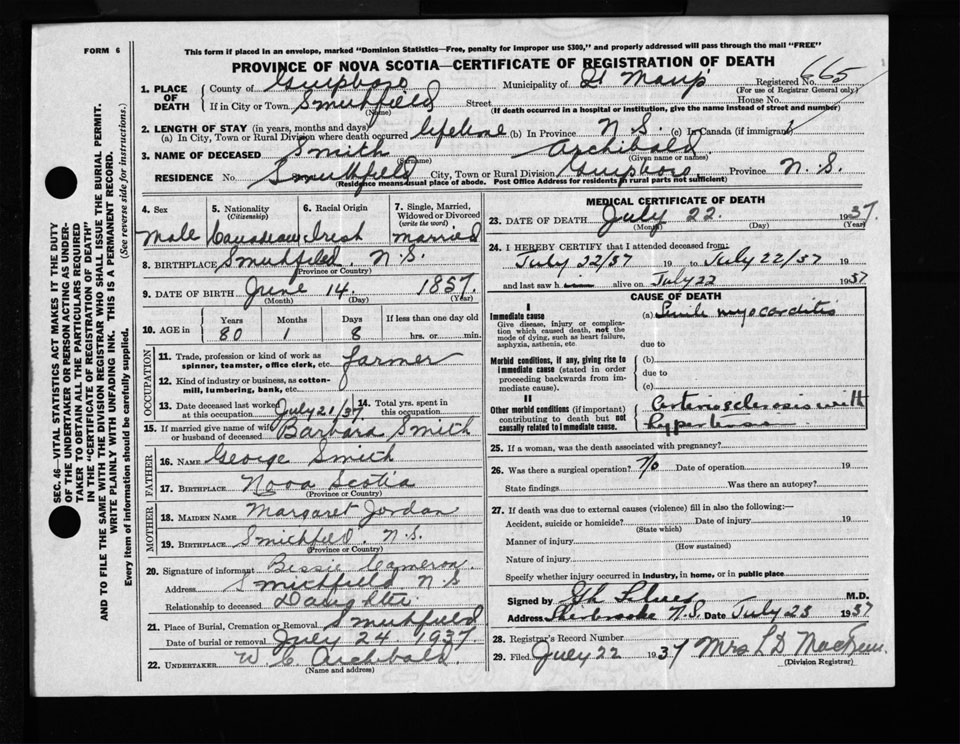 FORM 6
This form if placed in an envelope, marked "Dominion Statistics—Free, penalty for improper use $300," and properly addressed will pass through the mail "FREE"
PROVINCE OF NOVA SCOTIA—CERTIFICATE OF REGISTRATION OF DEATH
SEC. 46—VITAL STATISTICS ACT MAKES IT THE DUTY
OF THE UNDERTAKER OR PERSON ACTING AS UNDER-
TAKER TO OBTAIN ALL THE PARTICULARS REQUIRED
IN THE "CERTIFICATE OF REGISTRATION OF DEATH"
AND TO FILE THE SAME WITH THE DIVISION REGISTRAR WHO SHALL ISSUE THE BURIAL PERMIT.
WRITE PLAINLY WITH UNFADING INK. THIS IS A PERMANENT RECORD.
Every item of information should be carefully supplied. (See reverse side for instructions.)
1. PLACE OF DEATH
County of Guysboro Municipality of St Mary's Registered No. 665
(For use of Registrar General only)
If in City or Town Smithfield Street House No.
(Name) (If death occurred in a hospital or institution, give the name instead of street and number)
2. LENGTH OF STAY (in years, months and days)
(a) In City, Town or Rural Division where death occurred lifetime (b) In Province N.S. (c) In Canada (if immigrant)
3. NAME OF DECEASED Smith Archibald
(Surname) (Given name or names)
RESIDENCE No. Smithfield City, Town or Rural Division Guysboro Province N.S.
(Residence means usual place of abode. Post Office Address for residents in rural parts not sufficient)
4. Sex 5. Nationality (Citizenship) 6. Racial Origin 7. Single, Married, Widowed or Divorced (write the word)
Male Canadian Irish married
8. BIRTHPLACE Smithfield. N.S.
(Province or Country)
9. DATE OF BIRTH June 14. 1857
(Month) (Day) (Year)
10. AGE in Years Months Days If less than one day old
80 1 8 hrs. or min.
OCCUPATION
11. Trade, profession or kind of work as spinner, teamster, office clerk, etc. farmer
12. Kind of industry or business, as cotton-mill, lumbering, bank, etc.
13. Date deceased last worked at this occupation July 21/37 14. Total yrs. spent in this occupation
15. If married give name of wife or husband of deceased Barbara Smith
FATHER
16. NAME George Smith
17. BIRTHPLACE Nova Scotia
(Province or Country)
MOTHER
18. MAIDEN NAME Margaret Jordan
19. BIRTHPLACE Smithfield. N.S.
(Province or Country)
20. Signature of informant Bessie Cameron
Address Smithfield N S
Relationship to deceased Daughter
21. Place of Burial, Cremation or Removal Smithfield
Date of burial or removal July 24. 1937.
22. UNDERTAKER Archibald.
(Name and address)
MEDICAL CERTIFICATE OF DEATH
23. DATE OF DEATH July 22. 1937.
(Month) (Day) (Year)
24. I HEREBY CERTIFY that I attended deceased from:
July 22/37 19 to July 22/37 19
and last saw h alive on July 22 1937
CAUSE OF DEATH
I
Immediate cause
Give disease, injury or complication which caused death, not the mode of dying, such as heart failure, asphyxia, asthenia, etc.
(a) Senile myocarditis
due to
Morbid conditions, if any, giving rise to immediate cause (stated in order proceeding backwards from immediate cause).
(b)
due to
(c)
II
Other morbid conditions (if important) contributing to death but not causally related to immediate cause.
Arteriosclerosis with
hypertension
25. If a woman, was the death associated with pregnancy?
26. Was there a surgical operation? No Date of operation 19
State findings Was there an autopsy?
27. If death was due to external causes (violence) fill in also the following:—
Accident, suicide or homicide? Date of injury 19
(State which)
Manner of injury
(How sustained)
Nature of injury
Specify whether injury occurred in industry, in home, or in public place
Signed by M.D.
Address Sherbrooke N.S. Date July 23 1937
28. Registrar's Record Number
29. Filed July 22 1937 Mrs
(Division Registrar)